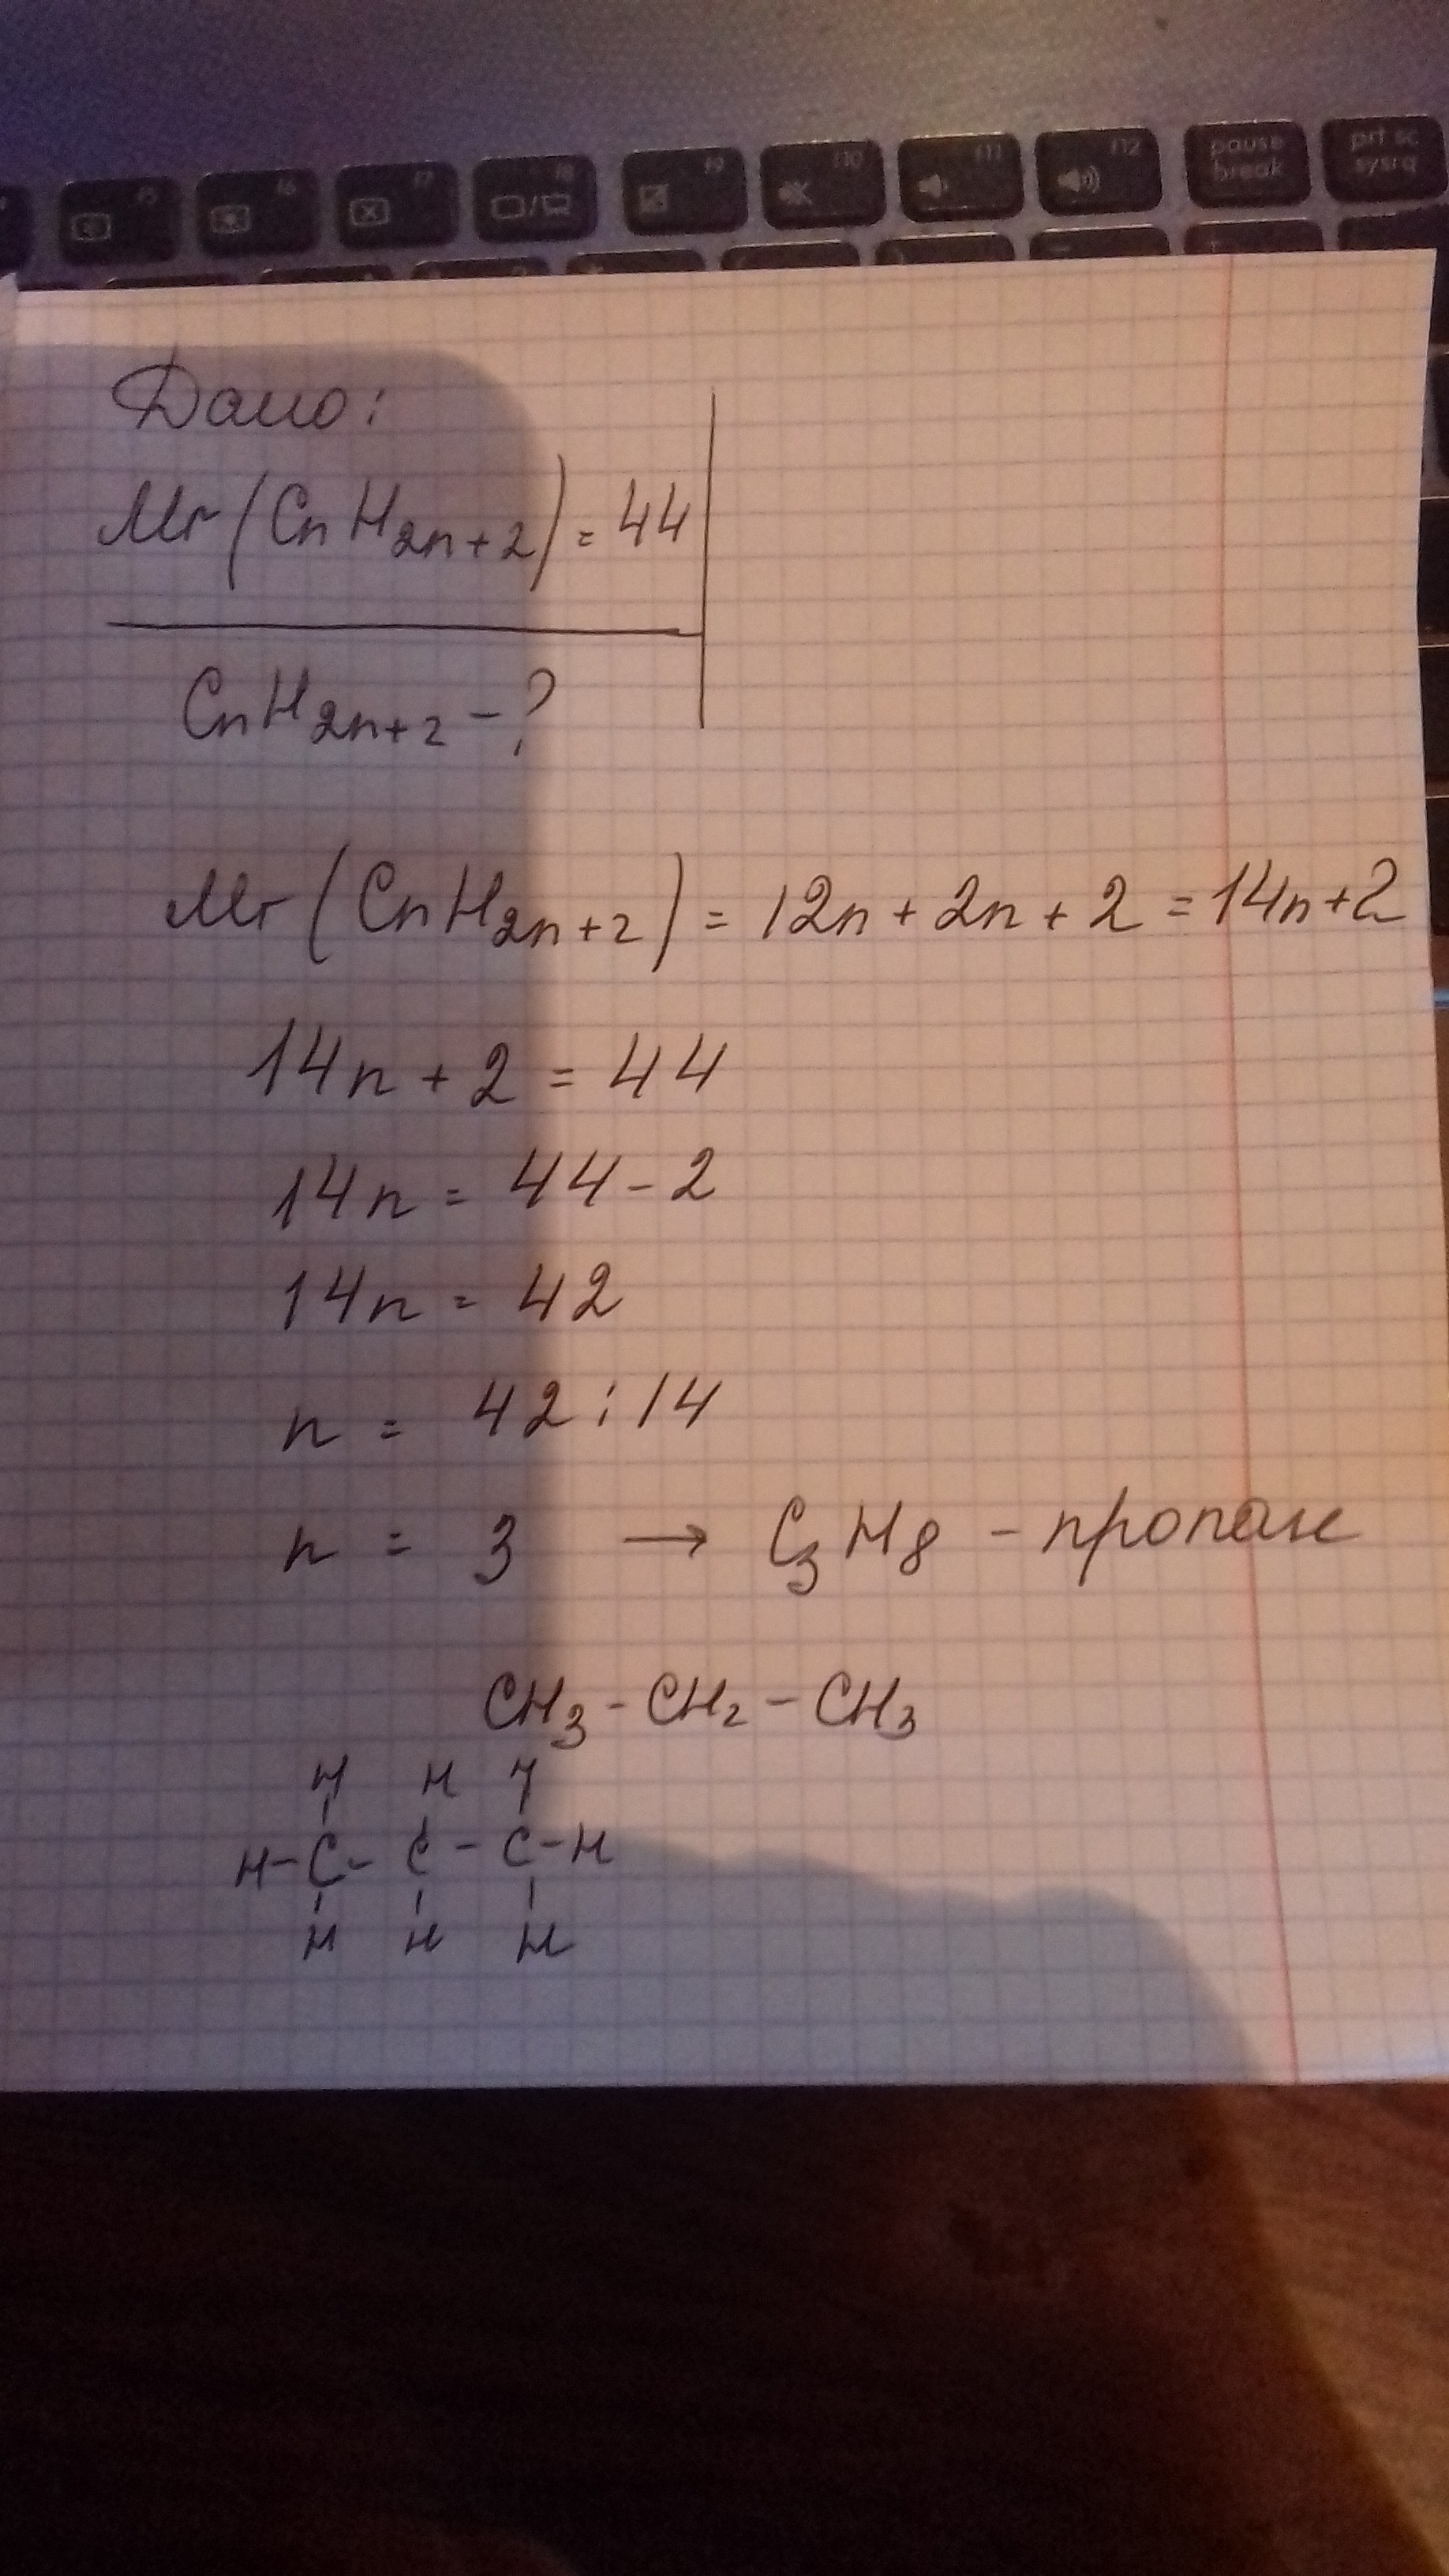 f5 f6 f7 f8 f9 f10 f11 f12 pause break prt sc sysrq
Дано:
Mr (CnH2n+2) = 44
CnH2n+2 - ?
Mr (CnH2n+2) = 12n + 2n + 2 = 14n+2
14n + 2 = 44
14n = 44 - 2
14n = 42
n = 42 : 14
n = 3 → C3H8 - пропан
CH3 - CH2 - CH3
H H H
H-C-C-C-H
H H H